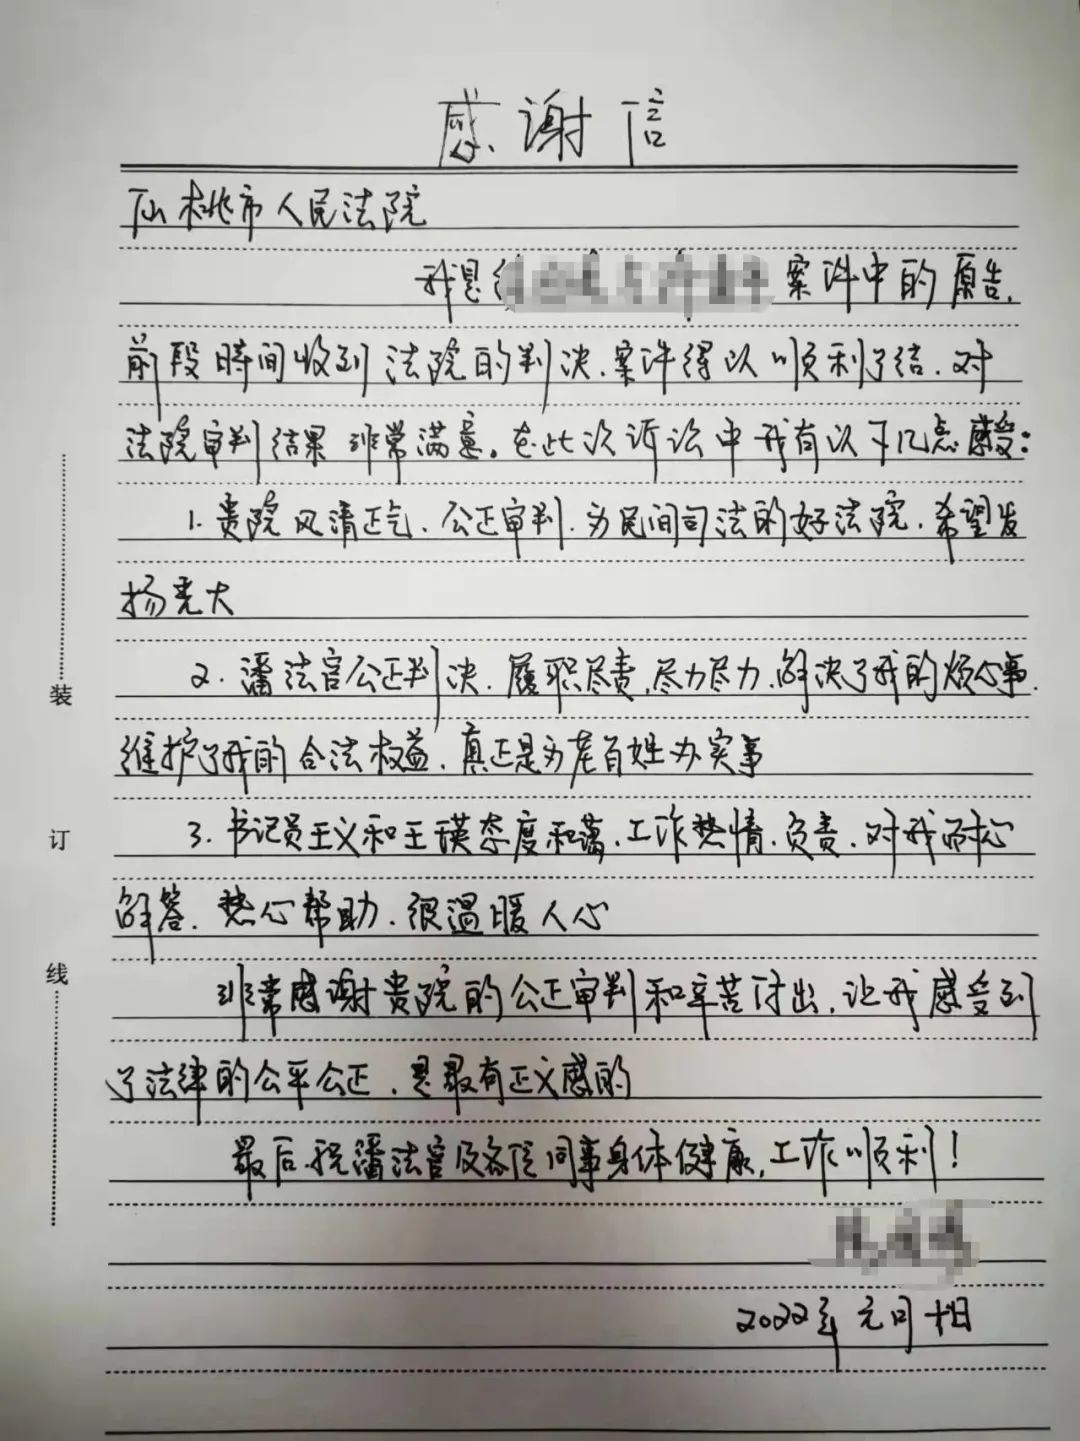 感谢信
仙桃市人民法院
我是 案件中的原告,
前段时间收到法院的判决、案件得以顺利了结、对
法院审判结果非常满意。在此次诉讼中我有以下几点感受:
1. 贵院风清正气、公正审判、为民间司法的好法院、希望发
扬光大
2. 潘法官公正判决、履职尽责、尽力尽力、解决了我的烦心事、
维护了我的合法权益、真正是为老百姓办实事
3. 书记员王义和王瑛态度和蔼、工作热情、负责、对我耐心
解答、热心帮助、很温暖人心
非常感谢贵院的公正审判和辛苦付出,让我感受到
了法律的公平公正、是最有正义感的
最后祝潘法官及各位同事身体健康,工作顺利!
2022年元月 日
装
订
线